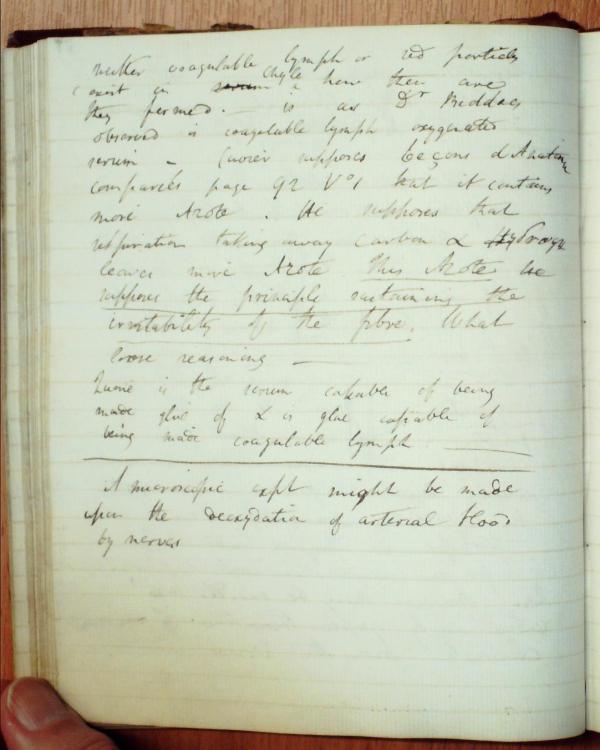 neither coagulable lymph or red particles
exist in serum Chyle & how then are
they formed. — is as Dr Beddoes
observed is coagulable lymph oxygenated
serum — Cuvier supposes Leçons d'Anatomie
comparées page 92 Vol 1 that it contains
more Azote. He supposes that
respiration taking away Carbon & Hydrogen
leaves more Azote. This Azote he
supposes the principle sustaining the
irritability of the fibre. What
loose reasoning —
Quere is the serum capable of being
made glue of & is glue capable of
being made coagulable lymph
A microscopic expt might be made
upon the deoxydation of arterial blood
by nerves